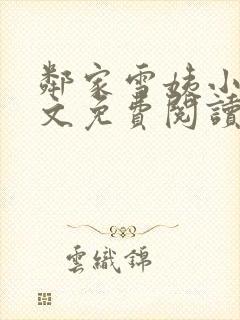 鄰家雪姨小
文免費閱讀
雲織錦